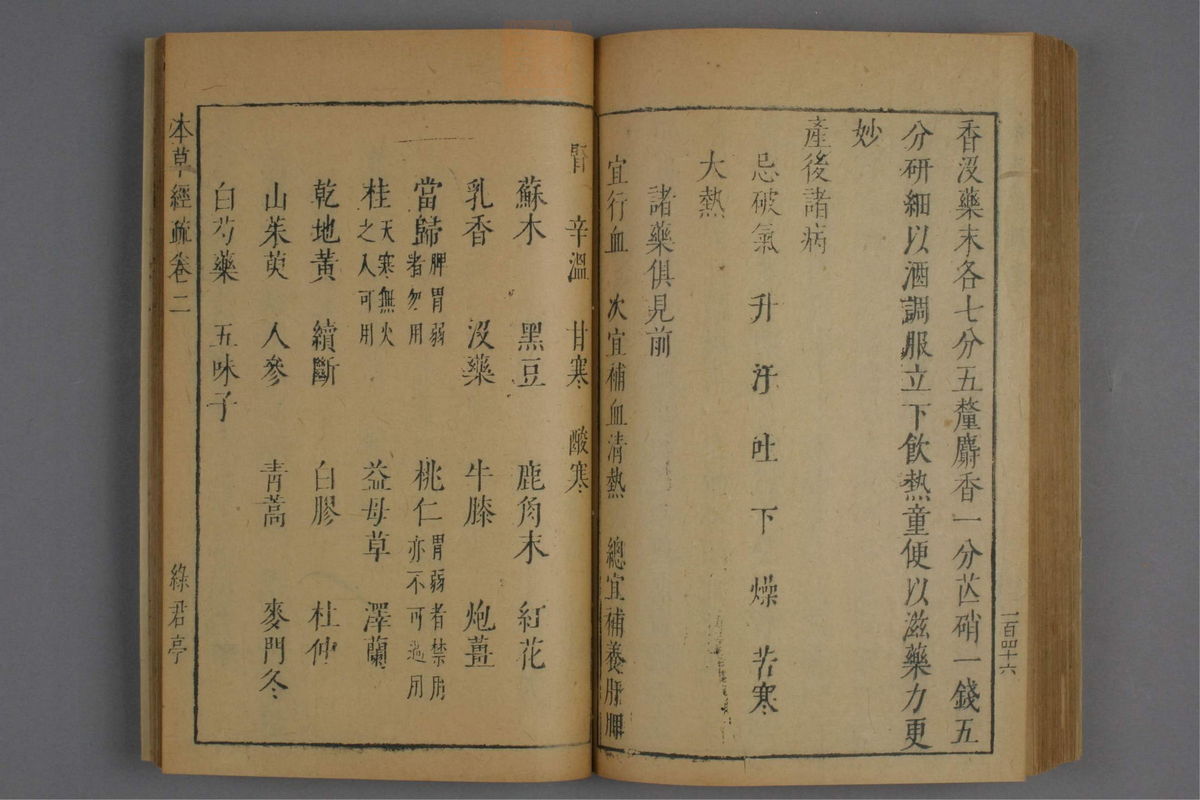 一百四十六
香沒藥末各七分五釐麝香一分芒硝一錢五
分研細以酒調服立下飲熱童便以滋藥力更
妙
產後諸病
忌破氣 升 汗 吐 下 燥 苦寒
大熱
諸藥俱見前
宜行血 次宜補血清熱 總宜補養肝脾
腎 辛溫 甘寒 酸寒
蘇木 黑豆 鹿角末 紅花
乳香 沒藥 牛膝 炮薑
當歸脾胃弱者勿用 桃仁胃弱者禁用亦不可過用
桂天寒無火之人可用 益母草 澤蘭
乾地黃 續斷 白膠 杜仲
山茱萸 人參 青蒿 麥門冬
白芍藥 五味子
本草經疏卷二 綠君亭